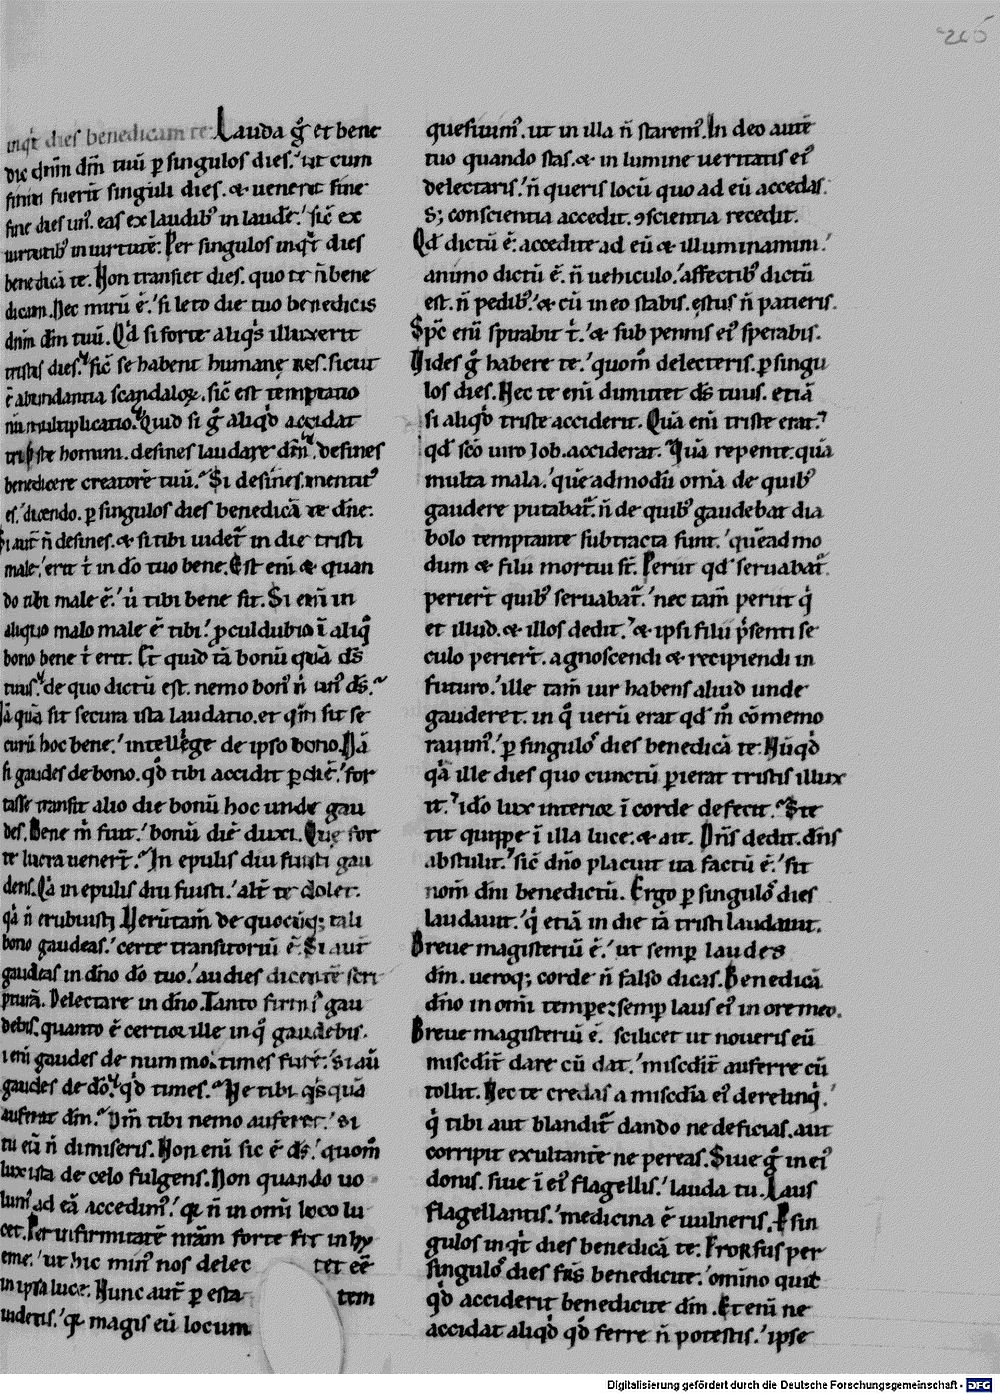 265
inqt dies benedicam te. Lauda g̃ et bene
dic dñm dm̃ tuũ p singulos dies. ut cum
finiti fuerĩt singuli dies. & uenerit sine
fine dies unꝰ. eas ex laudibꝰ in laudẽ. sic̃ ex
uirtutibꝰ in uirtutẽ. Per singulos inqt dies
benedicã te. Non transiet dies. quo te ñ bene
dicam. Nec mirũ ẽ. si leto die tuo benedicis
dñm dm̃ tuũ. Qd̃ si forte aliqͥs illuxerit
tristis dies. sic̃ se habent humanę res. sicut
ẽ abundantia scandaloꝝ. sic̃ est temptatio
nũ multiplicatio. Quid si g̃ aliqͥd accidat
triste homini. desines laudare dm̃. desines
benedicere creatorẽ tuũ. Si desines. mentitꝰ
es. dicendo. p singulos dies benedicã te dñe.
Si aut̃ ñ desines. & si tibi uidet̃ in die tristi
male. erit t̃ in dõ tuo bene. Est eni̇̃ & quan
do tibi male ẽ. ũ tibi bene sit. Si eni̇̃ in
aliquo malo male ẽ tibi. pculdubio ĩ aliqͦ
bono bene t̃ erit. Et quid tã bonũ quã ds̃
tuus. de quo dictũ est. nemo bonꝰ ñ unꝰ ds̃.
Iã quã sit secura ista laudatio. et qm̃ sit se
curũ hoc bene. intellege de ipso bono. Nã
si gaudes de bono. qͦd tibi accidit p diẽ. for
tasse transit alio die bonũ hoc unde gau
des. Bene m̃ fuit. bonũ diẽ duxi. Quę for
te lucra uenerĩt. In epulis diu fuisti gau
dens. Qã in epulis diu fuisti. alt̃ te dolet.
qã ñ erubuisti. Uerũtam̃ de quocũq; tali
bono gaudeas. certe transitoriũ ẽ. Si aut̃
gaudeas in dño dõ tuo. audies dicentẽ scri
pturã. Delectare in dño. Tanto firmiꝰ gau
debis. quanto ẽ certior ille in qͦ gaudebis.
i eni̇̃ gaudes de nummo. times furẽ. Si aũ
gaudes de dõ. qͥd times. Ne tibi qͥs quã
auferat dm̃. Dm̃ tibi nemo auferet. si
tu eũ ñ dimiseris. Non eni̇̃ sic ẽ ds̃. quom̃
lux ista de celo fulgens. Non quando uo
lumꝰ ad eã accedimꝰ. qꝛ ñ in omni loco lu
cet. Per infirmitatẽ nr̃am forte fit in hy
eme. ut hic minꝰ nos delectet eẽ
in ipsa luce. Nunc aut̃ p esta tem
uidetis. qꝛ magis eũ locum
quesiuimꝰ. ut in illa ñ staremꝰ. In deo autẽ
tuo quando stas. & in lumine ueritatis eiꝰ
delectaris. ñ queris locũ quo ad eũ accedas.
S; conscientia accedit. ꝯscientia recedit.
Qd̃ dictũ ẽ. accedite ad eũ & illuminamini.
animo dictũ ẽ. ñ uehiculo. affectibꝰ dictũ
est. ñ pedibꝰ. & cũ in eo stabis. ęstus ñ patieris.
Spc̃ eni̇̃ spirabit t̃. & sub pennis eiꝰ sperabis.
Uides g̃ habere te. quom̃ delecteris. p singu
los dies. Nec te eni̇̃ dimittet ds̃ tuus. etiã
si aliqͥd triste acciderit. Quã eni̇̃ triste erat.
qd̃ scõ uiro Iob. acciderat. Quã repente. quã
multa mala. quẽadmodũ om̃ia de quibꝰ
gaudere putabat̃. ñ de quibꝰ gaudebat dia
bolo temptante subtracta sunt. quẽad mo
dum & filii mortui st̃. Periit qd̃ seruabat̃.
perierĩt quibꝰ seruabat̃. nec tam̃ periit qͥ
et illud. & illos dedit. & ipsi filii p̃senti se
culo perierĩt. agnoscendi & recipiendi in
futuro. ille tam̃ uir habens aliud unde
gauderet. in qͦ uerũ erat qd̃ m̃ cõmemo
rauimꝰ. p singulos dies benedicã te. Nũqͥd
qã ille dies quo cunctũ pierat tristis illux
it. idõ lux interior ĩ corde defecit. Ste
tit quippe ĩ illa luce. & ait. Dñs dedit. dñs
abstulit. sic̃ dño placuit ita factũ ẽ. sit
nom̃ dñi benedictũ. Ergo p singulos dies
laudauit. qͥ etiã in die tã tristi laudauit.
Breue magisteriũ ẽ. ut semp laudes
dm̃. ueroq; corde ñ falso dicas. Benedicã
dño in om̃i tempe: semp laus eiꝰ in ore meo.
Breue magisteriũ ẽ. scilicet ut noueris eũ
miscdit̃ dare cũ dat. miscdit̃ auferre cũ
tollit. Nec te credas a miscdĩa eiꝰ derelinqͥ.
qͥ tibi aut blandit̃ dando ne deficias. aut
corripit exultantẽ ne pereas. Siue g̃ in eiꝰ
donis. siue ĩ eiꝰ flagellis. lauda tu. Laus
flagellantis. medicina ẽ uulneris. P sin
gulos inqt dies benedicã te. Prorsus per
singulos dies frs̃ benedicite. omĩno quic
qͥd acciderit benedicite dm̃. Et eni̇̃ ne
accidat aliqͥd qͦd ferre ñ potestis. ipse
Digitalisierung gefördert durch die Deutsche Forschungsgemeinschaft - DFG